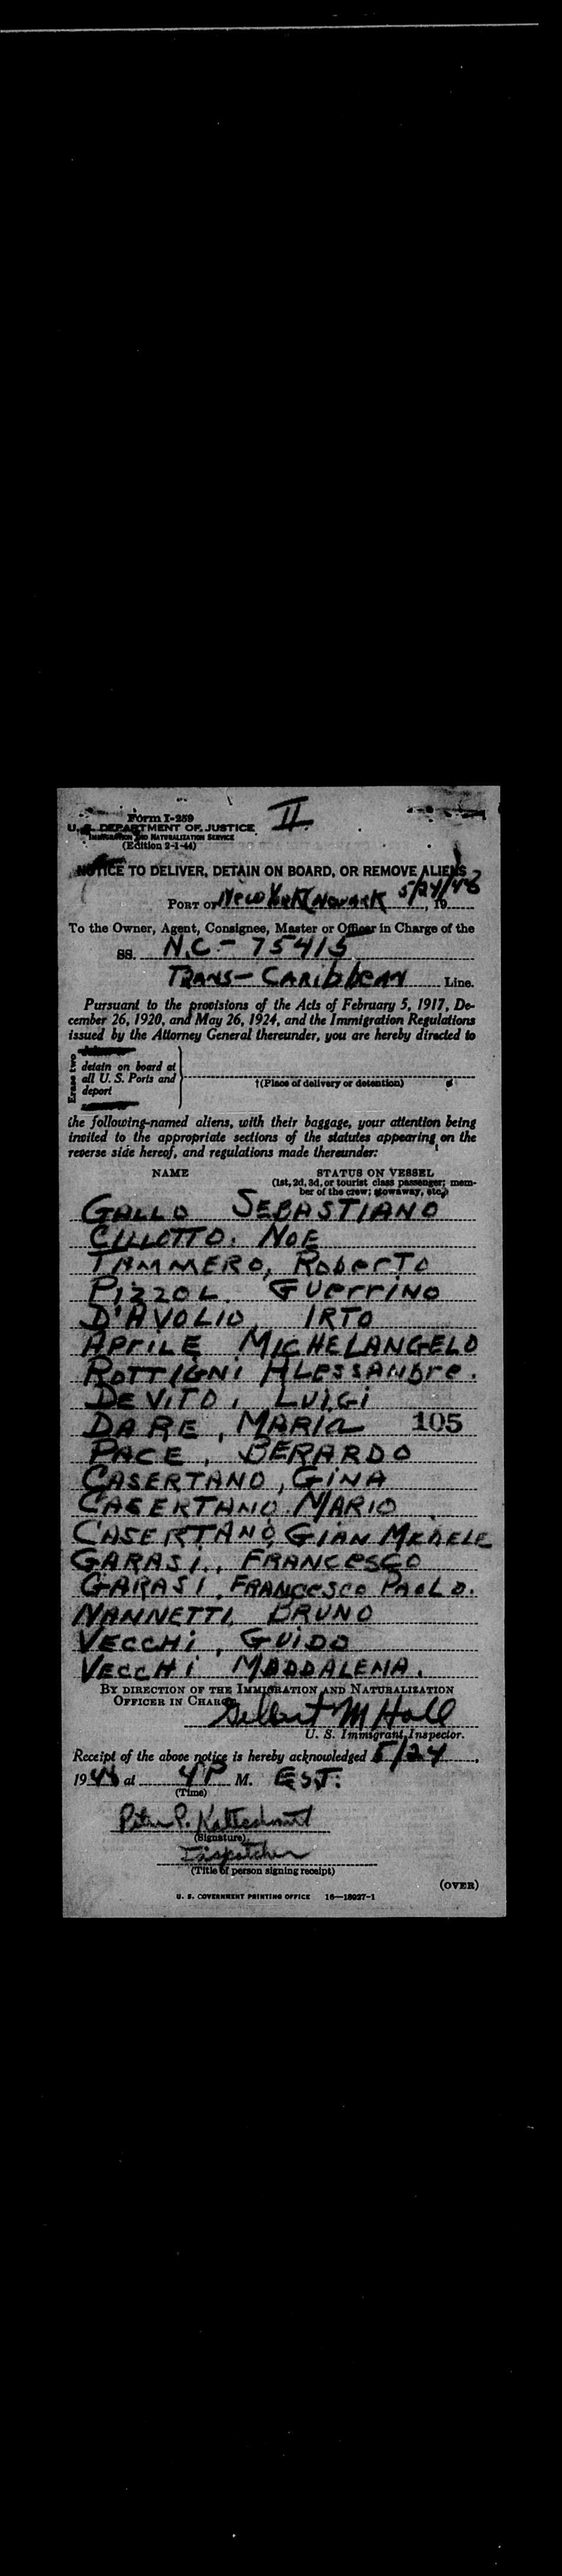 II
Form I-259
U. S. DEPARTMENT OF JUSTICE
IMMIGRATION AND NATURALIZATION SERVICE
(Edition 2-1-44)
NOTICE TO DELIVER, DETAIN ON BOARD, OR REMOVE ALIENS
PORT OF New York (Newark 5/24/48, 19
To the Owner, Agent, Consignee, Master or Officer in Charge of the
SS. N.C - 75415
TRANS - CARibbEAN Line.
Pursuant to the provisions of the Acts of February 5, 1917, De-
cember 26, 1920, and May 26, 1924, and the Immigration Regulations
issued by the Attorney General thereunder, you are hereby directed to
Erase two
detain on board at
all U. S. Ports and
deport
†(Place of delivery or detention)
the following-named aliens, with their baggage, your attention being
invited to the appropriate sections of the statutes appearing on the
reverse side hereof, and regulations made thereunder:
NAME STATUS ON VESSEL
(1st, 2d, 3d, or tourist class passenger; mem-
ber of the crew; stowaway, etc.)
GALLO SEBASTIANO
CILLOTTO. NOE
TAMMERO, ROberTO
PIZZOL. GUerriNO
D'AVOLIO, IRTO
APrILE MICHELANGELO
ROTTIGNI ALESSANDre.
DE VITO, LUIGI
DARE, MARIA 105
PACE, BERARDO
CASERTANO, GINA
CASERTANO. MARIO
CASERTANO, GIAN
GARASI., FRANCESCO
GARASI, FRANCESCO PAOLO.
NANNETTI, BRUNO
VECCHI, GUIDO
VECCHI MADDALENA.
BY DIRECTION OF THE IMMIGRATION AND NATURALIZATION
OFFICER IN CHARGE
Gilbert M Hall
U. S. Immigrant Inspector.
Receipt of the above notice is hereby acknowledged 5/24,
1948 at 4 P M. EST.
(Time)
Peter P.
(Signature)
Dispatcher
(Title of person signing receipt)
(OVER)
U. S. GOVERNMENT PRINTING OFFICE 16—18027-1